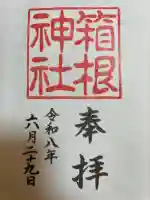 箱根
神社
奉拝
令和八年
六月二十九日